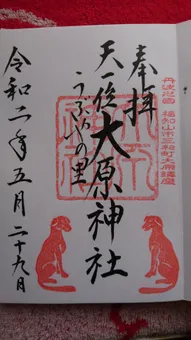 丹波之國 福知山市三和町大原鎮座
奉拝
天一位大原神社
うぶやの里
令和二年五月二十九日